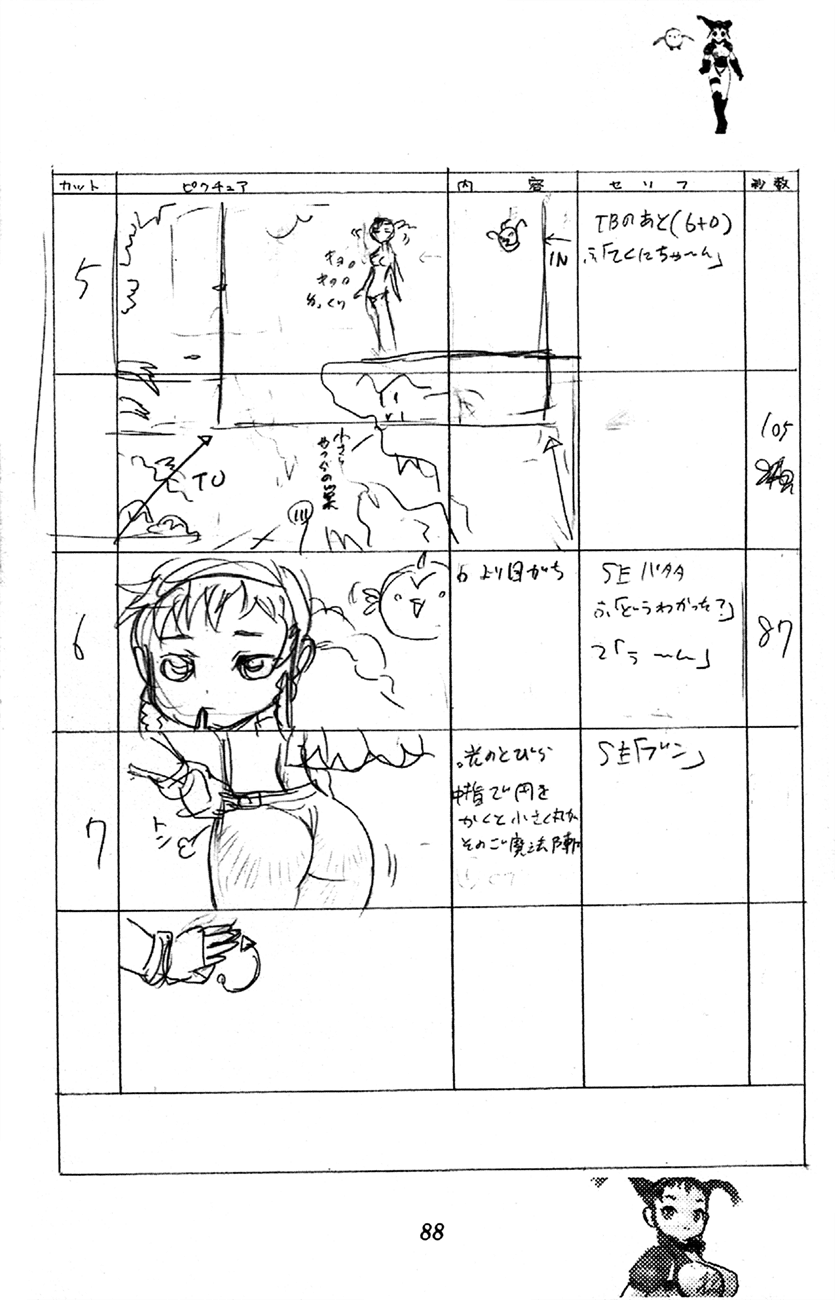 カット ピクチュア 内容 セリフ 秒数
5
キョロ
キョロ
IN
TBのあと(6+0)
ふ「てくにちゃ〜ん」
TU
105
6
より目がち
SE バタタ
ふ「どーうわかった?」
て「う〜〜ん」
87
7
光のとびら
中指で円を
かくと小さく丸が
そのご魔法陣
SE「ブン」
88